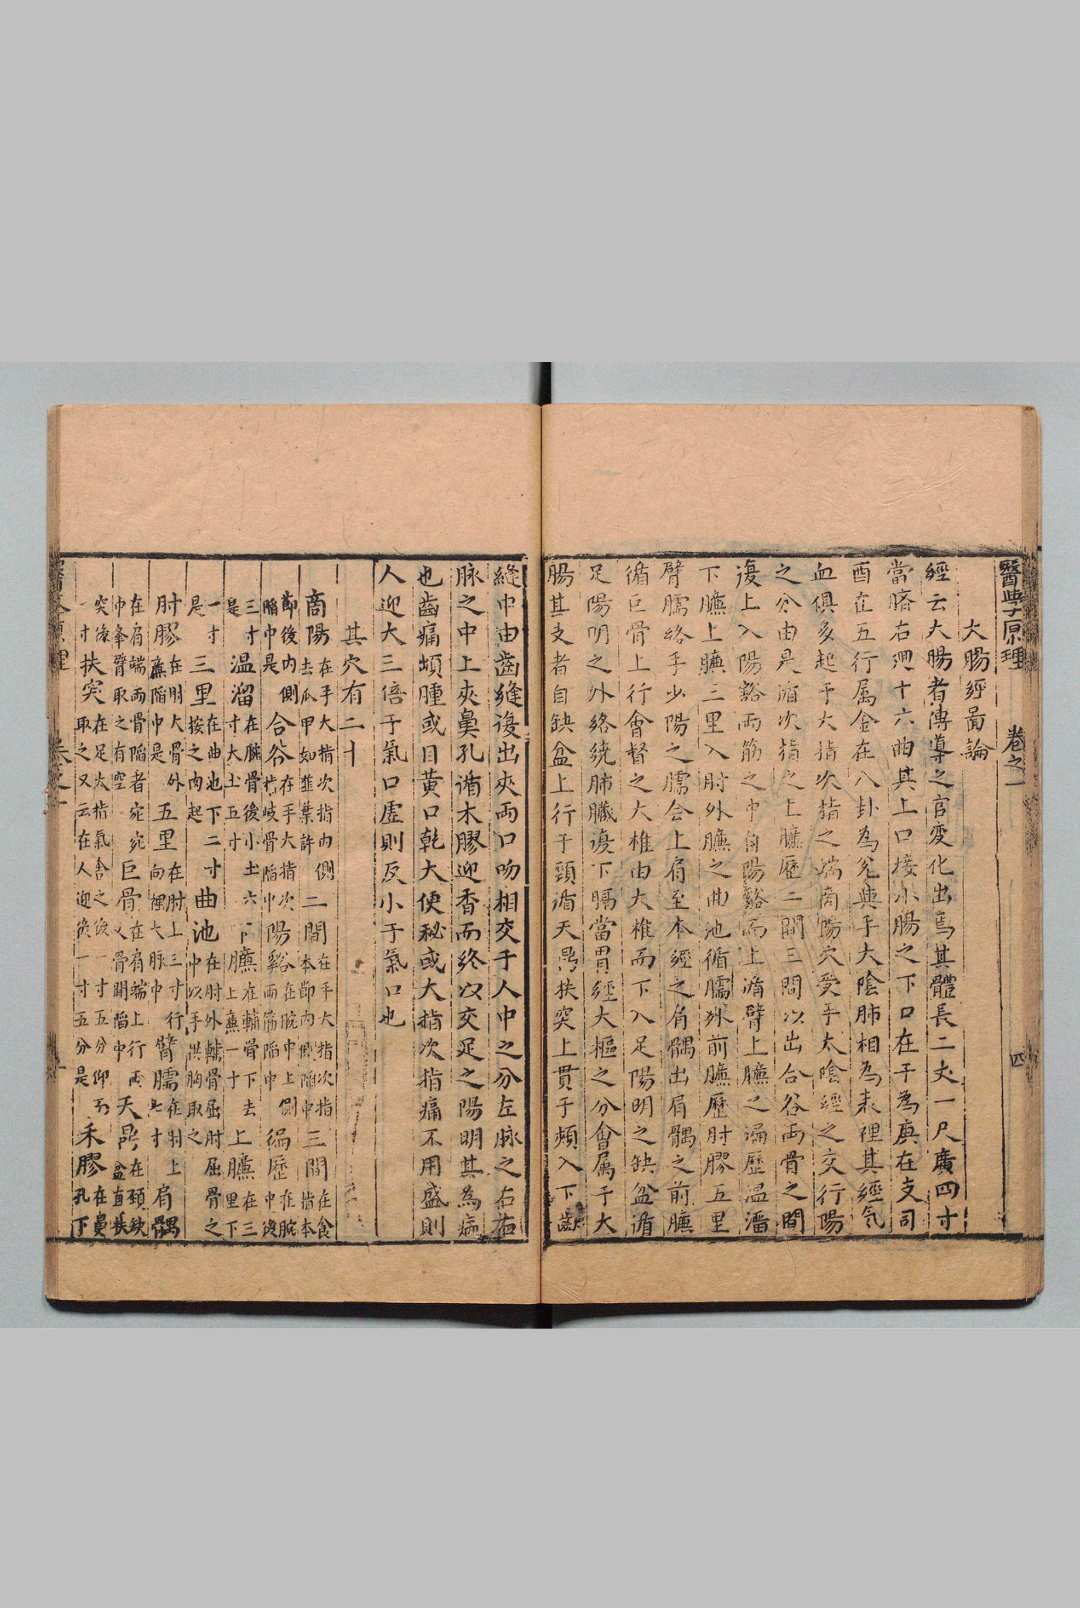 醫學原理　卷之一　四
大腸經圖論
經云大腸者傳導之官變化出焉其體長二丈一尺廣四寸
當臍右迴十六曲其上口接小腸之下口在干為庚在支司
酉在五行属金在八卦為兌與手太陰肺相為表裡其經气
血俱多起于大指次指之端商陽穴受手太陰經之交行陽
之分由是循次指之上臁歷二間三間以出合谷両骨之間
復上入陽谿両筋之中自陽谿而上循臂上臁之徧歷温溜
下臁上臁三里入肘外臁之曲池循臑外前臁歷肘膠五里
臂臑絡手少陽之臑会上肩至本經之肩髃出肩髃之前臁
循巨骨上行會督之大椎由大椎而下入足陽明之缺盆循
足陽明之外絡繞肺臟復下膈當胃經天樞之分會属于大
腸其支者自缺盆上行于頭循天鼎扶突上貫于頰入下齒
縫中由齒縫復出夾両口吻相交于人中之分左脉之右右
脉之中上夾鼻孔循木膠迎香而終以交足之陽明其為病
也齒痛䪼腫或目黄口乾大便秘或大指次指痛不用盛則
人迎大三倍于氣口虚則反小于氣口也
其穴有二十
商陽在手大指次指內側去爪甲如韮葉許二間在手大指次指本節內側陷中三間在食指本
節後內側陷中是合谷在手大指次指岐骨陷中陽谿在腕中上側両筋陷中徧歷在腕中後
三寸是温溜在腕骨後小士六寸大士五寸下臁在輔骨下去上臁一寸上臁在三里下
一寸是三里在曲池下二寸按之肉起曲池在肘外輔骨屈肘屈骨之中以手拱胸取之
肘膠在肘大骨外臁陷中是五里在肘上三寸行向裡大脉中臂臑在肘上七寸肩髃
在肩端両骨陷者宛宛中舉臂取之有空巨骨在肩端上行両乂骨間陷中天鼎在頸缺盆直扶
突後一寸扶突在足太指氣舍之後一寸五分仰而取之又云在人迎後一寸五分是禾膠在鼻孔下
醫學原理　卷之一